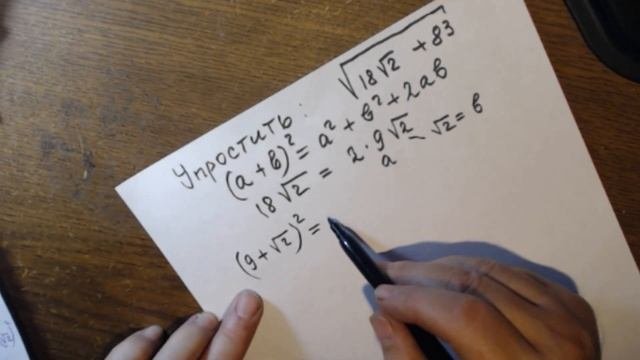 Упростить: √(18√2 + 83)
(a+b)² = a² + b² + 2ab
18√2 = 2·9√2
a √2 = b
(9+√2)² =